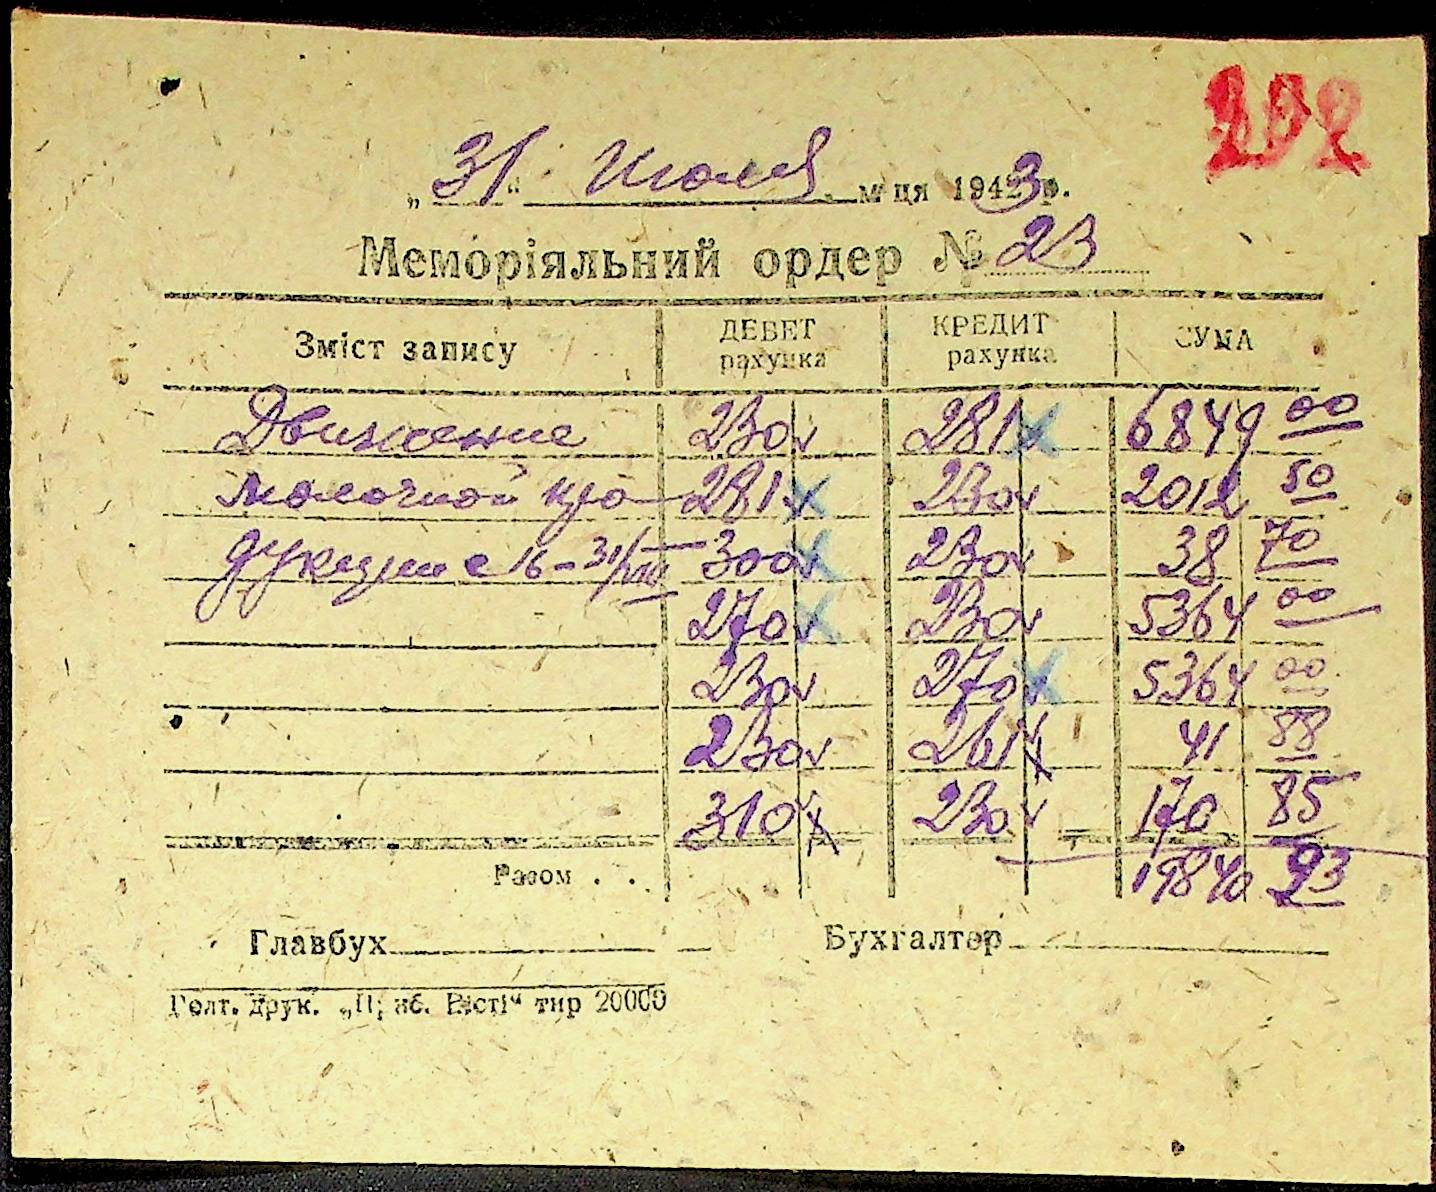 292
„31“ Июля м-ця 1943 р.
Меморіяльний ордер № 23
Зміст запису ДЕБЕТ рахунка КРЕДИТ рахунка СУМА
Движение 230 281 6849 00
молочной про 281 230 2012 50
дукции с 16-31/VII 300 230 38 70
270 230 5364 00
230 270 5364 00
230 261 41 88
310 230 170 85
Разом . . 19840 93
Главбух Бухгалтер
Голт. друк. „Пр иб. Вісті“ тир 20000